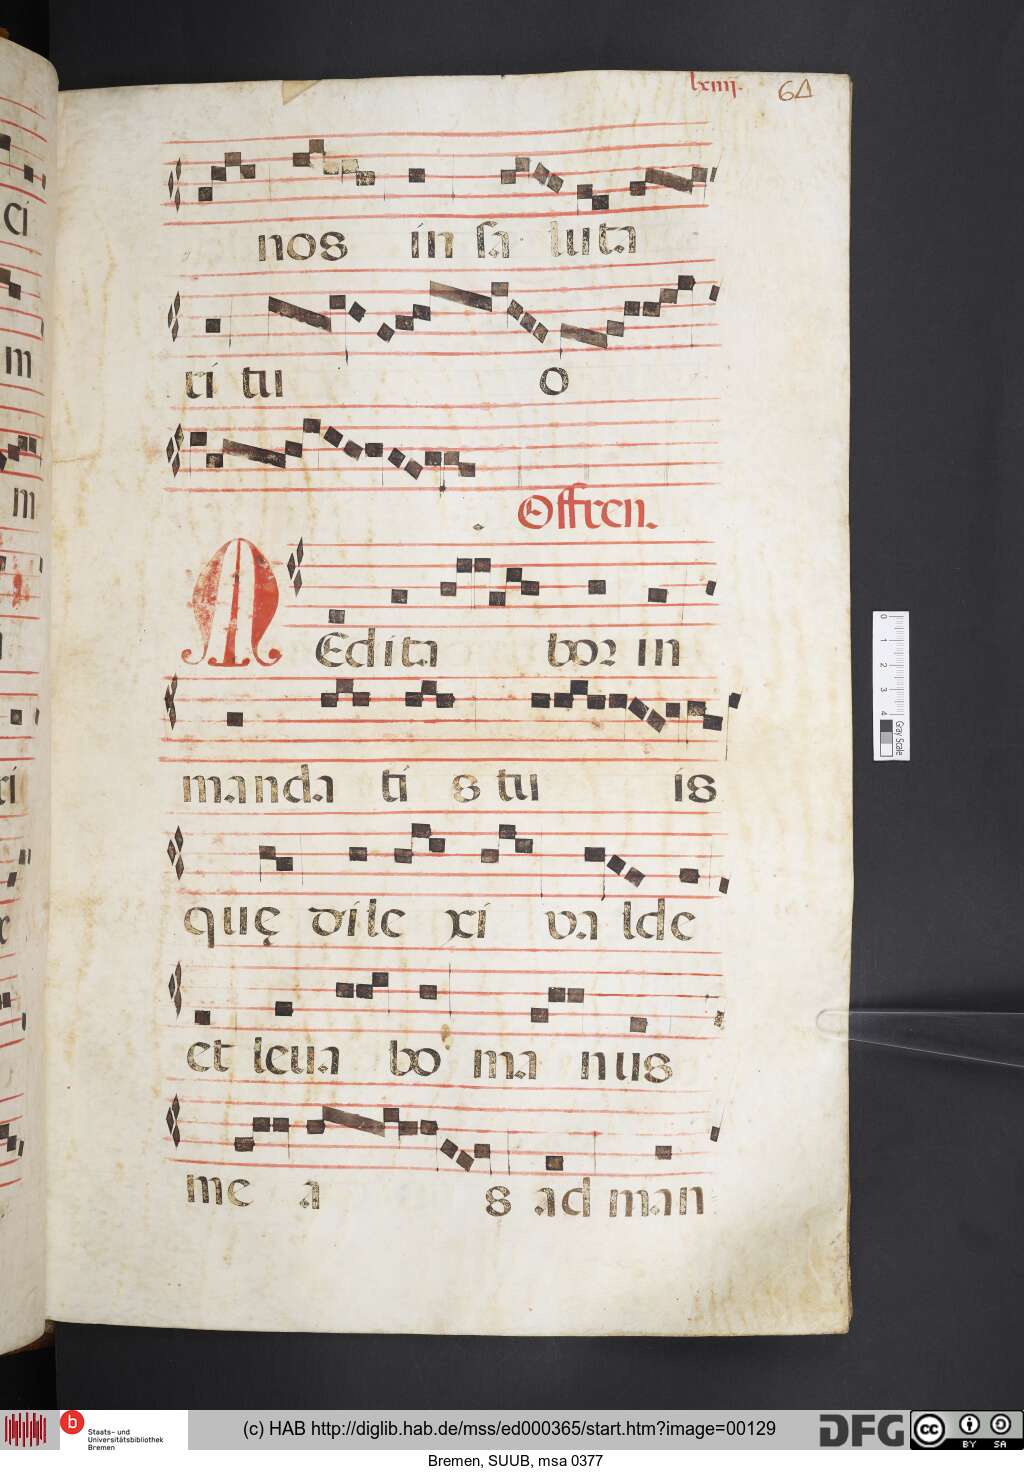 lxiiij.
64
nos in saluta
ri tu o
Offren.
MEdita bor in
manda ti s tu is
quę dile xi va lde
et leua bo ma nus
me a s ad man
ci
m
m
ri
0 1 2 3 4
Gray Scale
b
Staats- und
Universitätsbibliothek
Bremen
(c) HAB http://diglib.hab.de/mss/ed000365/start.htm?image=00129
DFG
cc BY SA
Bremen, SUUB, msa 0377